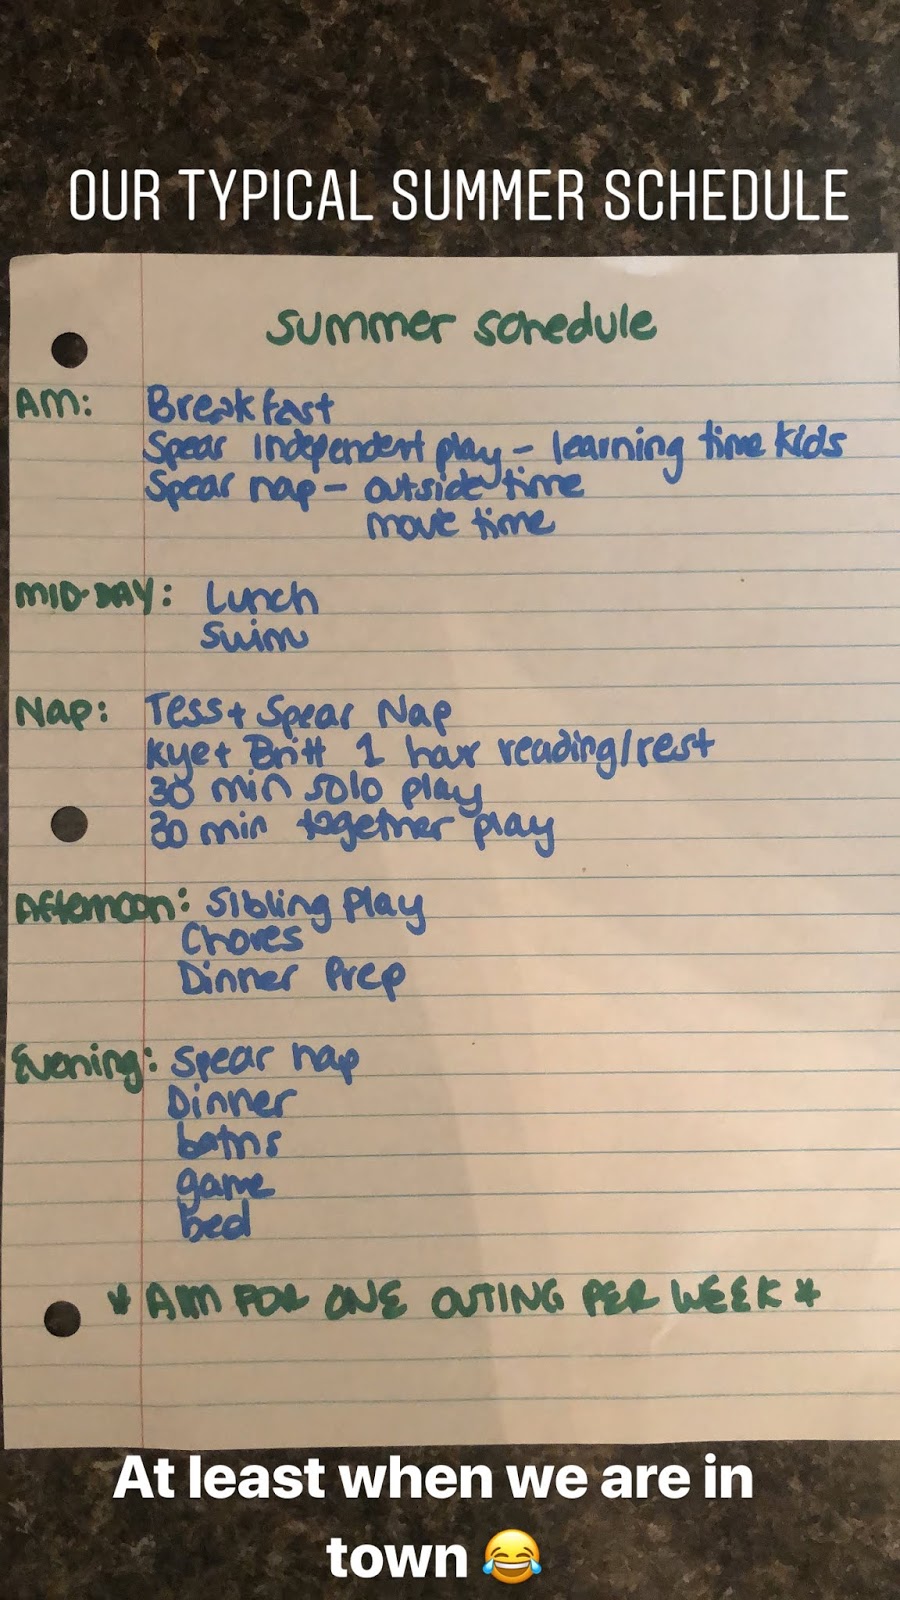 OUR TYPICAL SUMMER SCHEDULE
Summer schedule
AM: Breakfast
Spear Independent play - learning time kids
Spear nap - outside time
move time
MID-DAY: Lunch
Swim
Nap: Tess + Spear Nap
Kye + Britt 1 hour reading/rest
30 min solo play
30 min together play
Afternoon: Sibling Play
Chores
Dinner Prep
Evening: Spear nap
Dinner
baths
game
bed
* AIM FOR ONE OUTING PER WEEK *
At least when we are in
town 😂